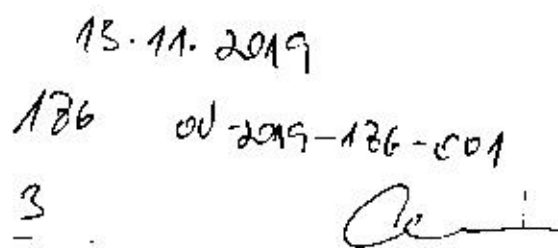 13.11.2019
176 OU-2019-176-C01
3